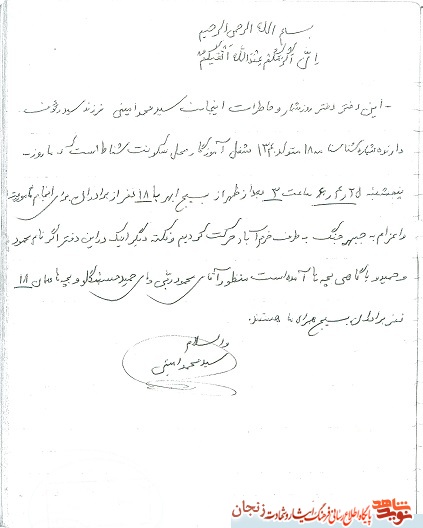 بسم الله الرحمن الرحیم
اِنَّ اَکْرَمَکُمْ عِنْدَاللهِ اَتْقیکُمْ
- این دفتر دفتر روزشمار و خاطرات اینجانب سید محمد امینی فرزند سید
دارنده شماره شناسنامه ۱۸ متولد ۱۳۴۰ شغل آموزگار محل سکونت شناط است که ما روز -
پنجشنبه ۲۵ ساعت ۲ بعد از ظهر از بسیج ابهر با ۱۸ نفر از برادران برای انجام مأموریت
و اعزام به جبهه جنگ به طرف خرم آباد حرکت کردیم و نکته دیگر اینکه در این دفتر اگر نام محمود
و حمید و یا گاهی بچه ها آمده است منظور آقای محمود و آقای حمید و بچه ها همان ۱۸
نفر برادران بسیج همراه ما هستند.
والسلام
سید محمد امینی
نوید شاهد پایگاه اطلاع رسانی فرهنگ ایثار و شهادت زنجان